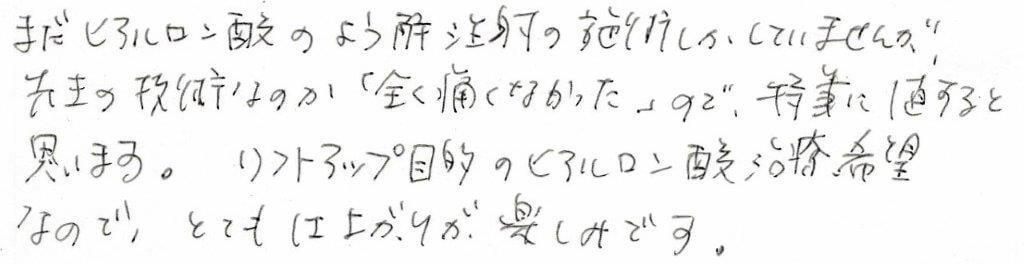 まだヒアルロン酸のよう解注射の施術しかしていませんが、
先生の技術なのか「全く痛くなかった」ので、特筆に値すると
思います。 リフトアップ目的のヒアルロン酸治療希望
なので、とても仕上がりが楽しみです。